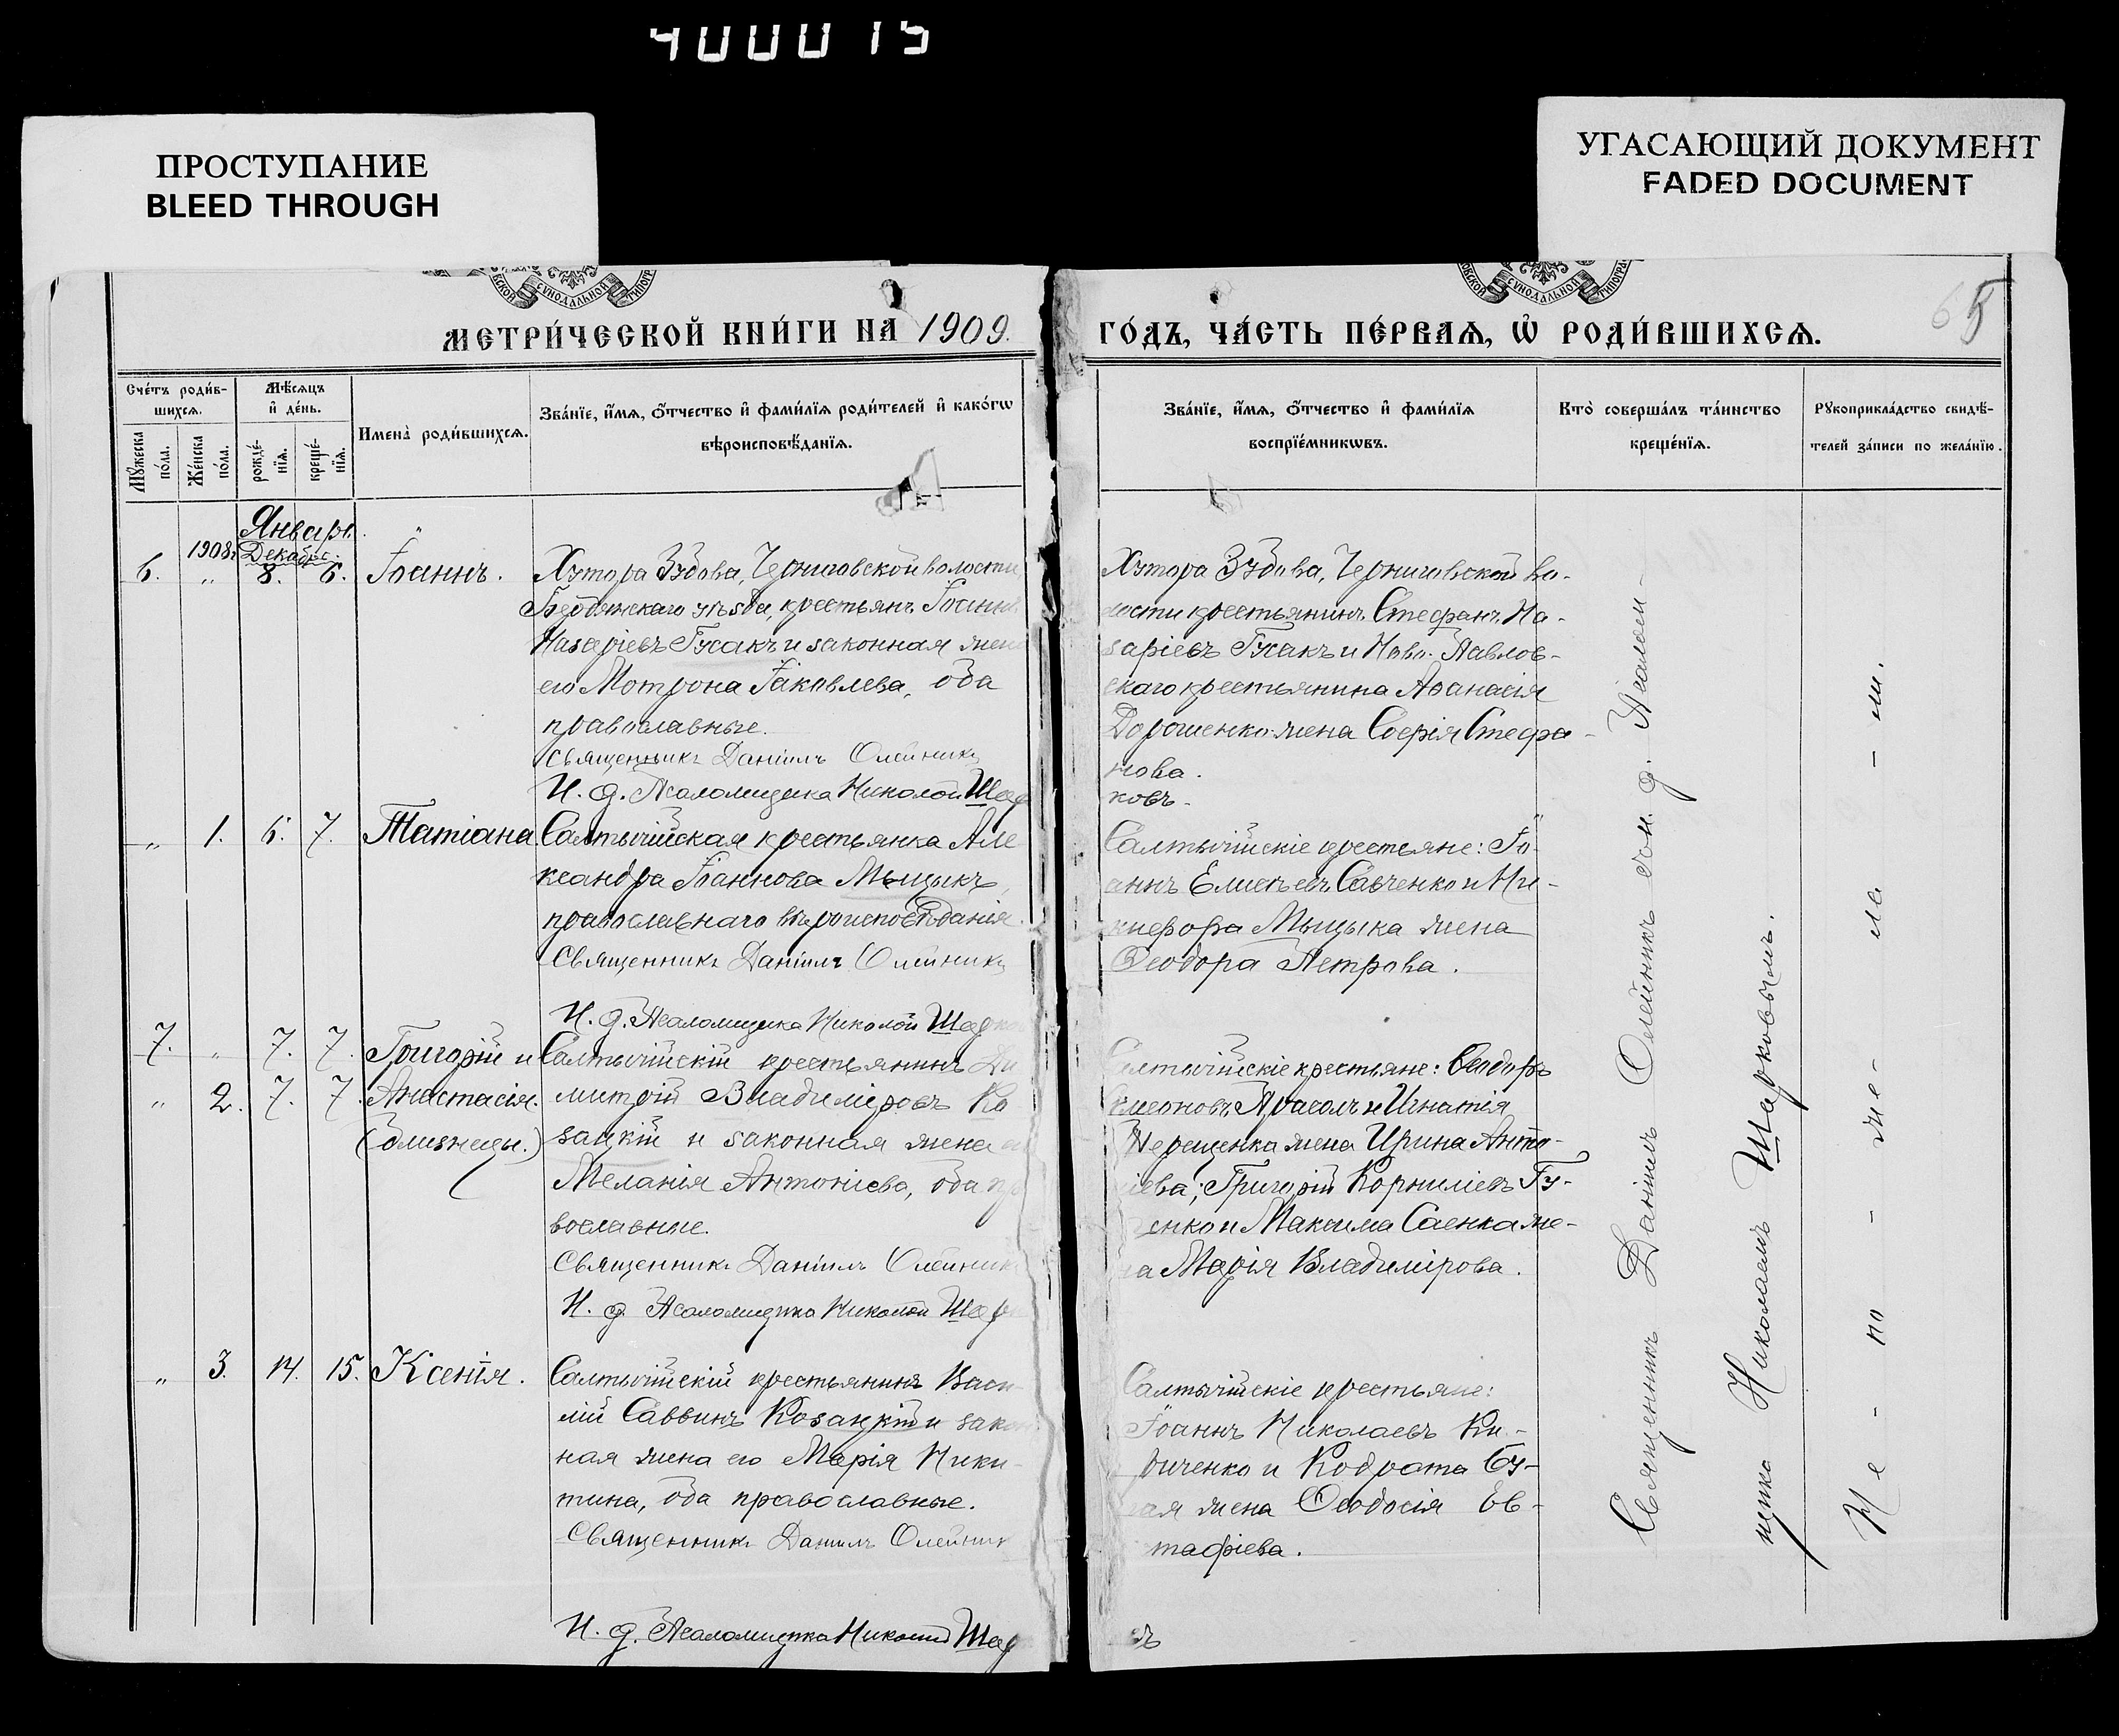 400015
ПРОСТУПАНИЕ
BLEED THROUGH
УГАСАЮЩИЙ ДОКУМЕНТ
FADED DOCUMENT
СѴНОДАЛЬНОЙ
СѴНОДАЛЬНОЙ
МЕТРИ́ЧЕСКОЙ КНИ́ГИ НА 1909.
ГО́ДЪ, ЧА́СТЬ ПЕ́РВАѦ, Ѡ҆ РОДИ́ВШИХСѦ.
65
Сче́тъ роди́в-
шихсѧ.
Мꙋ́жеска по́ла.
Же́нска по́ла.
Мѣ́сѧцъ
и҆ де́нь.
рожде́-нїѧ.
креще́-нїѧ.
Имена̀ роди́вшихсѧ.
Зва́нїе, и҆́мѧ, ѻ҆́тчество и҆ фами́лїѧ роди́телей и҆ како́гѡ
вѣроисповѣ́данїѧ.
Зва́нїе, и҆́мѧ, ѻ҆́тчество и҆ фами́лїѧ
воспрїе́мникѡвъ.
Кто̀ соверша́лъ та́инство
креще́нїѧ.
Рꙋкоприкла́дство свидѣ́-
телей за́писи по жела́нїю.
Январь.
1908г. Декабрь.
6. „ 8. 6. Іоаннъ.
Хутора Зубова, Черниговской волости,
Бердянскаго уѣзда, крестьян. Іоаннъ
Назаріевъ Гусакъ и законная жена
его Мотрона Іаковлева, оба
православные.
Священникъ Даніилъ Олейникъ
И. д. Псаломщика Николай Шар
Хутора Зубова, Черниговской во-
лости крестьянинъ Стефанъ На-
заріевъ Гусакъ и Ново-Павлов-
скаго крестьянина Аѳанасія
Дорошенко жена Софія Стефа-
нова.
ковъ.
„ 1. 6. 7. Татіана
Салтычійская крестьянка Але
ксандра Іоаннова Мыцыкъ,
православнаго вѣроисповѣданія.
Священникъ Даніилъ Олейникъ
И. д. Псаломщика Николай Шарко
Салтычійскіе крестьяне: Іо-
аннъ Елисѣевъ Савченко и Ни-
кифора Мыцыка жена
Ѳеодора Петрова.
7. „ 7. 7. Григорій и
„ 2. 7. 7. Анастасія.
(близнецы.)
Салтычійскій крестьянинъ Ди
митрій Владиміровъ Ко
зацкій и законная жена
Меланія Антоніева, оба пр
вославные.
Священникъ Даніилъ Олейник
И. д. Псаломщика Николай Шар
Салтычійскіе крестьяне: Ѳеодоръ
Симеоновъ Прасолъ и Игнатія
Терещенка жена Ирина Анто-
ніева; Григорій Корниліевъ Гу-
енко и Максима Саенка же-
на Марія Владимірова.
„ 3. 14. 15. Ксенія.
Салтычійскій крестьянинъ Васи-
лій Саввинъ Козацкій и закон
ная жена его Марія Ники-
тина, оба православные.
Священникъ Даніилъ Олейник
И. д. Псаломщика Николай Шар
Салтычійскіе крестьяне:
Іоаннъ Николаевъ Ки-
риченко и Кодрата Гу-
жена Ѳеодосія Ев-
тафіева.
ъ
Священникъ Даніилъ Олейникъ съ и. д. Псалом-
щика Николаемъ Шарковымъ.
Не - по - же - ла - ли.